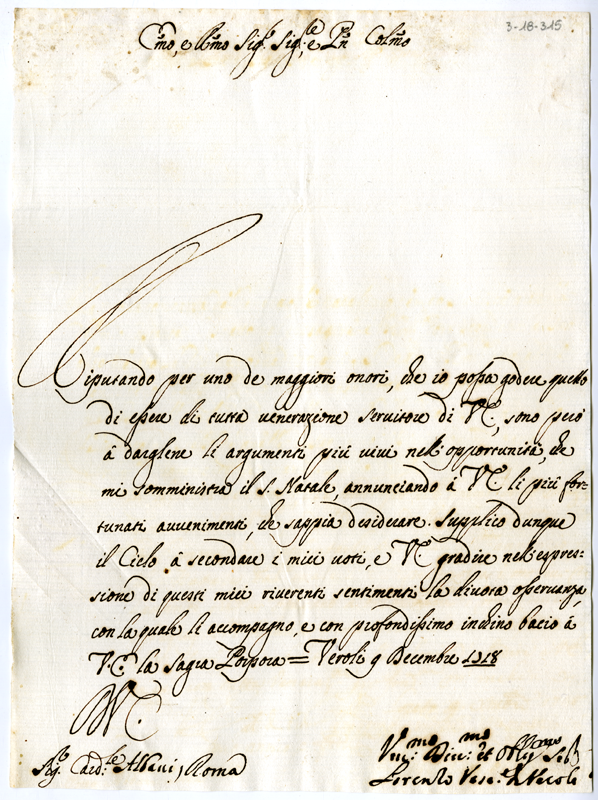 3-18-315
Emo, e Rmo Sigr. Sigr.e Pn Colmo
Riputando per uno de maggiori onori, che io possa godere quello
di essere di tutta venerazione servitore di VE., sono però
à dargliene li argumenti più vivi nell'opportunità, che
mi somministra il S. Natale, annunciando à VE. li più for=
tunati avvenimenti, che sappia desiderare. Supplico dunque
il Cielo à secondare i miei voti, e VE. gradire nell'espres=
sione di questi miei riverenti sentimenti la divota osservanza,
con la quale li accompagno, e con profondissimo inchino bacio à
V.E. la Sagra Porpora = Veroli 9 Decembre 1718
VE.
Sig. Card.le Albani, Roma
Vmo: Divmo: et Obblmo
Lorenzo Vesc.o di Veroli